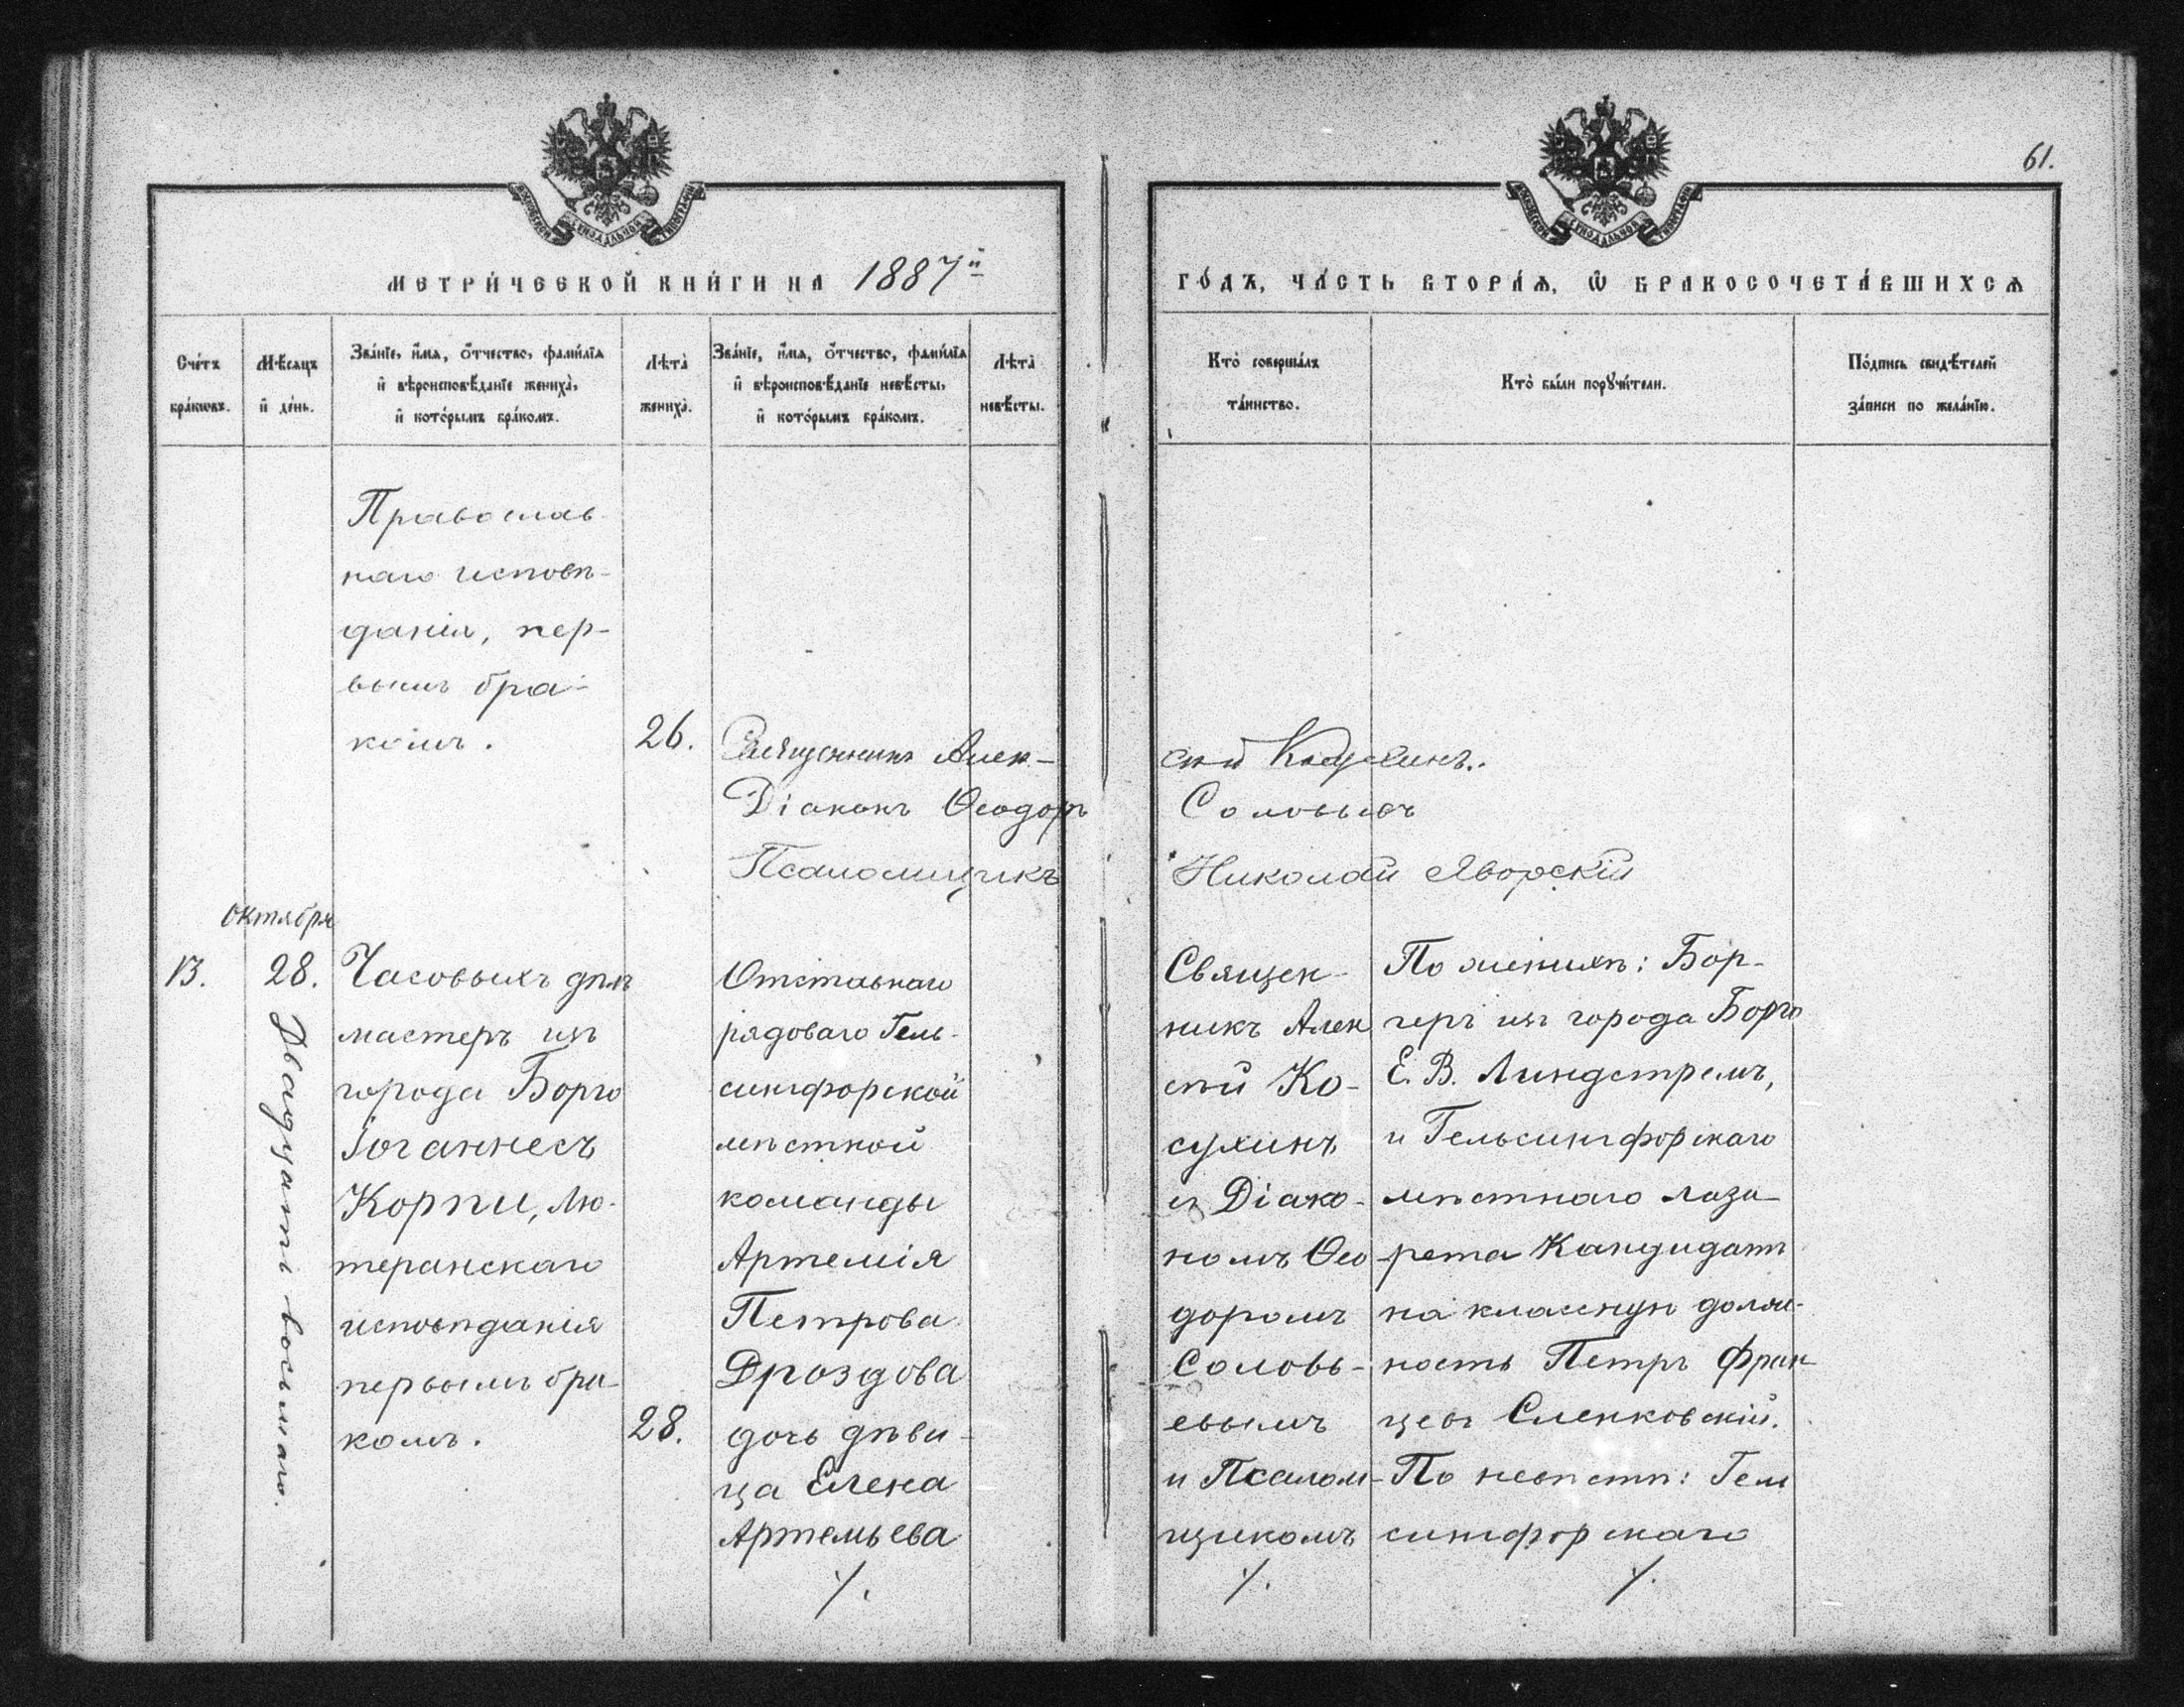 61.
МЕТРИ́ЧЕСКОЙ КНИ́ГИ НА 1887й
ГО́ДЪ, ЧА́СТЬ ВТОРА́Ѧ, Ѡ БРАКОСОЧЕТА́ВШИХСѦ
Сче́тъ бра́ковъ.
Мѣ́сяцъ и де́нь.
Зва́нїе, и́мѧ, о́тчество, фами́лїѧ
и вѣроисповѣ́данїе жениха̀,
и кото́рымъ бра́комъ.
Лѣ́та жениха̀.
Зва́нїе, и́мѧ, о́тчество, фами́лїѧ
и вѣроисповѣ́данїе невѣ́сты,
и кото́рымъ бра́комъ.
Лѣ́та невѣ́сты.
Кто̀ соверша́лъ
та́инство.
Кто̀ бы́ли порꙋчи́тели.
По́дпись свидѣ́телей
за́писи по жела́нїю.
Православ-
наго исповѣ-
данія, пер-
вымъ бра-
комъ.
26.
Священникъ Алек-
сѣй Косухинъ.
Діаконъ Ѳеодоръ
Соловьевъ
Псаломщикъ
Николай Яворскій
Октября
13.
28.
Двадцать восьмаго.
Часовыхъ дѣлъ
мастеръ изъ
города Борго
Іоганнесъ
Корпи, Лю-
теранскаго
исповѣданія
первымъ бра-
комъ.
28.
Отставнаго
рядоваго Гель-
сингфорской
мѣстной
команды
Артемія
Петрова
Дроздова
дочь дѣви-
ца Елена
Артемьева
%.
Священ-
никъ Алек
сѣй Ко-
сухинъ
съ Діако-
номъ Ѳео
доромъ
Соловь-
евымъ
и Псалом-
щикомъ
%.
По женихѣ: Бор-
геръ изъ города Борго
Е. В. Линдстремъ,
и Гельсингфорскаго
мѣстнаго лаза-
рета Кандидатъ
на классную долж-
ность Петръ Фран-
цевъ Сленковскій.
По невѣстѣ: Гель
сингфорскаго
%.